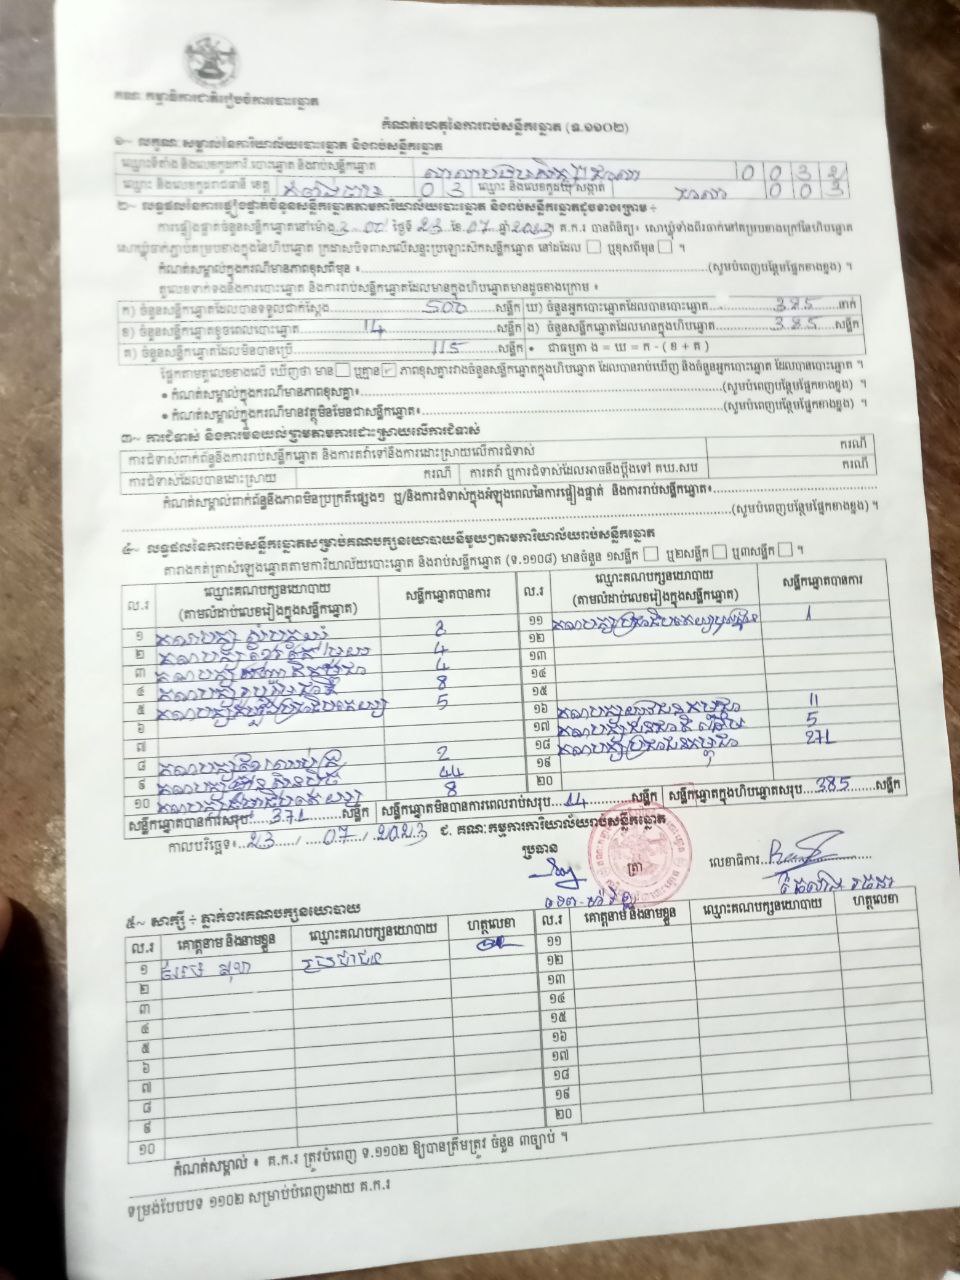 គណៈកម្មាធិការជាតិរៀបចំការបោះឆ្នោត
កំណត់ហេតុនៃការរាប់សន្លឹកឆ្នោត (ទ.១១០២)
១~ លក្ខណៈសម្គាល់នៃការិយាល័យបោះឆ្នោត និងរាប់សន្លឹកឆ្នោត
ឈ្មោះទីតាំង និងលេខកូដការិ.បោះឆ្នោត និងរាប់សន្លឹកឆ្នោត 0 0 3 2
ឈ្មោះ និងលេខកូដរាជធានី ខេត្ត កំពង់ចាម 0 3 ឈ្មោះ និងលេខកូដឃុំ សង្កាត់ 0 0 3
២~ លទ្ធផលនៃការផ្ទៀងផ្ទាត់ចំនួនសន្លឹកឆ្នោតតាមការិយាល័យបោះឆ្នោត និងរាប់សន្លឹកឆ្នោតដូចខាងក្រោម ÷
ការផ្ទៀងផ្ទាត់ចំនួនសន្លឹកឆ្នោតនៅម៉ោង ថ្ងៃទី 23 ខែ 07 ឆ្នាំ 2023 គ.ក.រ បានពិនិត្យ៖ សោឃ្លុំទាំងពីរចាក់នៅគម្របខាងក្រៅនៃហិបឆ្នោត
សោឃ្លុំចាក់ភ្ជាប់គម្របខាងក្នុងនៃហិបឆ្នោត ក្រដាសបិទពាសលើសន្ទះប្រឡោះស៊កសន្លឹកឆ្នោត នៅដដែល ឬខុសពីមុន ។
កំណត់សម្គាល់ក្នុងករណីមានភាពខុសពីមុន ៖ (សូមបំពេញបន្ថែមផ្នែកខាងខ្នង) ។
តួលេខទាក់ទងនឹងការបោះឆ្នោត និងការរាប់សន្លឹកឆ្នោតដែលមានក្នុងហិបឆ្នោតមានដូចខាងក្រោម ៖
ក) ចំនួនសន្លឹកឆ្នោតដែលបានទទួលជាក់ស្តែង 500 សន្លឹក ឃ) ចំនួនអ្នកបោះឆ្នោតដែលបានបោះឆ្នោត 385 នាក់
ខ) ចំនួនសន្លឹកឆ្នោតខូចពេលបោះឆ្នោត 14 សន្លឹក ង) ចំនួនសន្លឹកឆ្នោតដែលមានក្នុងហិបឆ្នោត 385 សន្លឹក
គ) ចំនួនសន្លឹកឆ្នោតដែលមិនបានប្រើ 115 សន្លឹក • ជាធម្មតា ង = ឃ = ក - ( ខ + គ )
ផ្អែកតាមតួលេខខាងលើ ឃើញថា មាន ឬគ្មាន ✓ ភាពខុសគ្នារវាងចំនួនសន្លឹកឆ្នោតក្នុងហិបឆ្នោត ដែលបានរាប់ឃើញ និងចំនួនអ្នកបោះឆ្នោត ដែលបានបោះឆ្នោត ។
• កំណត់សម្គាល់ក្នុងករណីមានភាពខុសគ្នា៖ (សូមបំពេញបន្ថែមផ្នែកខាងខ្នង) ។
• កំណត់សម្គាល់ក្នុងករណីមានវត្ថុមិនមែនជាសន្លឹកឆ្នោត៖ (សូមបំពេញបន្ថែមផ្នែកខាងខ្នង) ។
៣~ ការជំទាស់ និងការមិនយល់ព្រមតាមការដោះស្រាយលើការជំទាស់
ការជំទាស់ពាក់ព័ន្ធនឹងការរាប់សន្លឹកឆ្នោត និងការតវ៉ាទៅនឹងការដោះស្រាយលើការជំទាស់ ករណី
ការជំទាស់ដែលបានដោះស្រាយ ករណី ការតវ៉ា ឬការជំទាស់ដែលអាចនឹងប្តឹងទៅ គឃ.សប ករណី
កំណត់សម្គាល់ពាក់ព័ន្ធនឹងភាពមិនប្រក្រតីផ្សេងៗ ឬ/និងការជំទាស់ក្នុងអំឡុងពេលនៃការផ្ទៀងផ្ទាត់ និងការរាប់សន្លឹកឆ្នោត៖
(សូមបំពេញបន្ថែមផ្នែកខាងខ្នង) ។
៤~ លទ្ធផលនៃការរាប់សន្លឹកឆ្នោតសម្រាប់គណបក្សនយោបាយនីមួយៗតាមការិយាល័យរាប់សន្លឹកឆ្នោត
តារាងកត់ត្រាសំឡេងឆ្នោតតាមការិយាល័យបោះឆ្នោត និងរាប់សន្លឹកឆ្នោត (ទ.១១០៨) មានចំនួន ១សន្លឹក ឬ២សន្លឹក ឬ៣សន្លឹក ។
ល.រ ឈ្មោះគណបក្សនយោបាយ សន្លឹកឆ្នោតបានការ ល.រ ឈ្មោះគណបក្សនយោបាយ សន្លឹកឆ្នោតបានការ
(តាមលំដាប់លេខរៀងក្នុងសន្លឹកឆ្នោត) (តាមលំដាប់លេខរៀងក្នុងសន្លឹកឆ្នោត)
១ គណបក្ស 3 ១១ គណបក្ស 1
២ គណបក្ស 4 ១២
៣ គណបក្ស 4 ១៣
៤ គណបក្ស 8 ១៤
៥ គណបក្ស 5 ១៥
៦ ១៦ គណបក្ស 11
៧ ១៧ គណបក្ស 5
៨ គណបក្ស 2 ១៨ គណបក្សប្រជាជនកម្ពុជា 271
៩ គណបក្ស 44 ១៩
១០ គណបក្ស 8 ២០
សន្លឹកឆ្នោតបានការសរុប 371 សន្លឹក សន្លឹកឆ្នោតមិនបានការពេលរាប់សរុប 14 សន្លឹក សន្លឹកឆ្នោតក្នុងហិបឆ្នោតសរុប 385 សន្លឹក
កាលបរិច្ឆេទ៖ 23 / 07 / 2023 ជ. គណៈកម្មការការិយាល័យរាប់សន្លឹកឆ្នោត
ប្រធាន ត្រា លេខាធិការ
៥~ សាក្សី ÷ ភ្នាក់ងារគណបក្សនយោបាយ
ល.រ គោត្តនាម និងនាមខ្លួន ឈ្មោះគណបក្សនយោបាយ ហត្ថលេខា ល.រ គោត្តនាម និងនាមខ្លួន ឈ្មោះគណបក្សនយោបាយ ហត្ថលេខា
១ ១១
២ ១២
៣ ១៣
៤ ១៤
៥ ១៥
៦ ១៦
៧ ១៧
៨ ១៨
៩ ១៩
១០ ២០
កំណត់សម្គាល់ ៖ គ.ក.រ ត្រូវបំពេញ ទ.១១០២ ឱ្យបានត្រឹមត្រូវ ចំនួន ៣ច្បាប់ ។
ទម្រង់បែបបទ ១១០២ សម្រាប់បំពេញដោយ គ.ក.រ